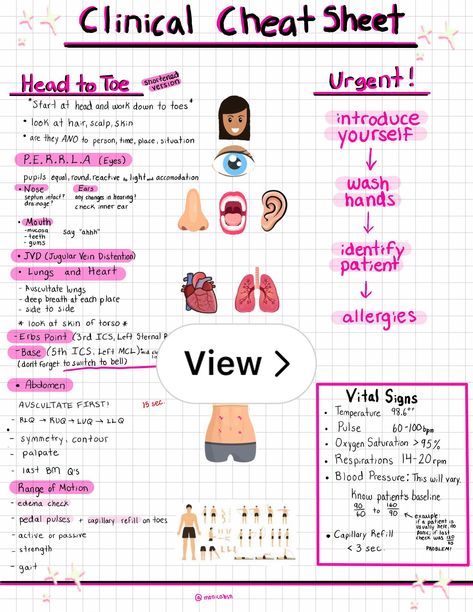 Clinical Cheat Sheet
Head to Toe
shortened version
"Start at head and work down to toes"
• look at hair, scalp, skin
• are they ANO to person, time, place, situation
P.E.R.R.L.A (Eyes)
pupils equal, round, reactive to light and accomodation
• Nose
septum intact?
drainage?
Ears
any changes in hearing?
check inner ear
Mouth
-mucosa
- teeth
- gums
say "ahhh"
• JVD (Jugular Vein Distention)
• Lungs and Heart
- Auscultate lungs
- deep breath at each place
- side to side
* look at skin of torso *
-Erbs Point (3rd ICS, Left Sternal
-Base (5th ICS, Left MCL)
(don't forget to switch to bell)
• Abdomen
AUSCULTATE FIRST!
15 sec.
- RLQ → RUQ → LUQ → LLQ
- symmetry, contour
- palpate
- last BM Q's
Range of Motion
- edema check
- pedal pulses + capillary refill on toes
- active or passive
- strength
- gait
View >
Urgent!
introduce
yourself
wash
hands
identify
patient
allergies
Vital Signs
• Temperature 98.6°
• Pulse 60-100 bpm
• Oxygen Saturation > 95%
• Respirations 14-20 rpm
• Blood Pressure: This will vary.
Know patients baseline
90/60 to 160/90
example:
if a patient is
usually here, no
panic; if last
check was 120/80
PROBLEM!
• Capillary Refill
< 3 sec.